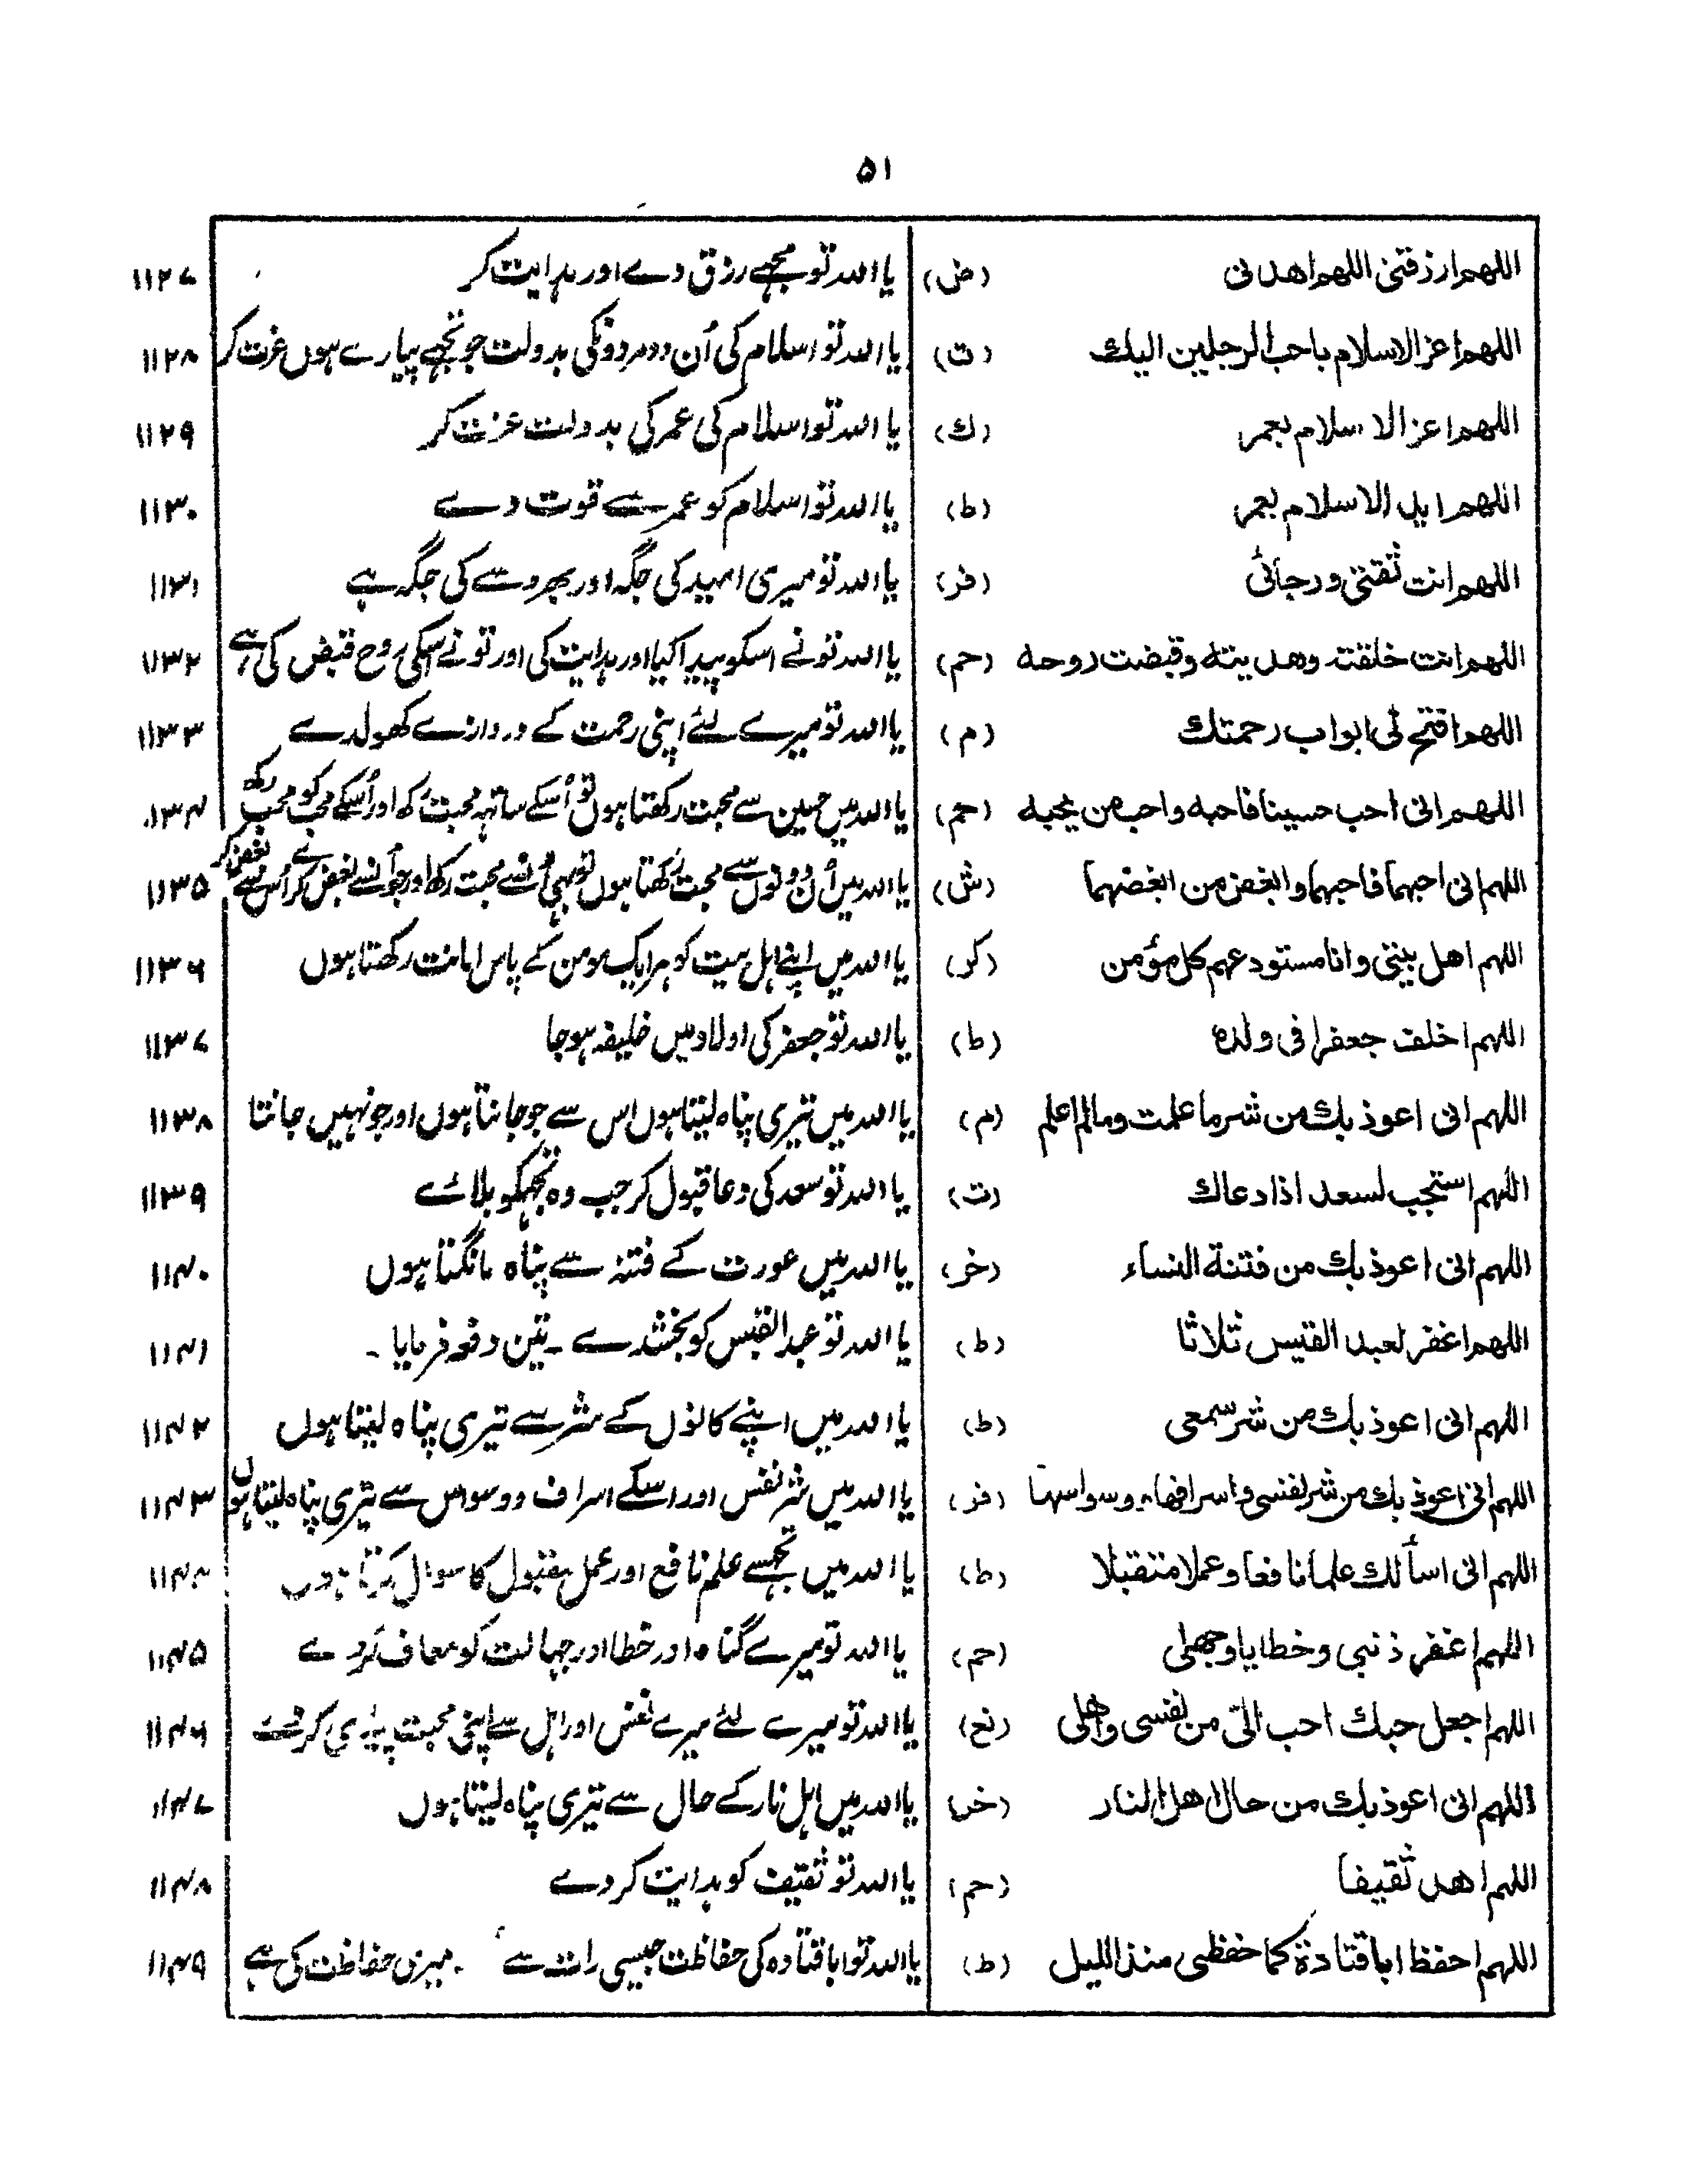 ۵۱
اللهم ارزقنی اللهم اهدنی (ض) یا اللہ تو مجھے رزق دے اور ہدایت کر ۱۱۲۷
اللهم اعز الاسلام باحب الرجلین الیك (ت) یا اللہ تو اسلام کی اُن دو مردونکی بدولت جو تجھے پیارے ہوں عزت کر ۱۱۲۸
اللهم اعز الاسلام بعمر (ك) یا اللہ تو اسلام کی عمر کی بدولت عزت کر ۱۱۲۹
اللهم اید الاسلام بعمر (ط) یا اللہ تو اسلام کو عمر سے قوت دے ۱۱۳۰
اللهم انت ثقتی ورجائی (فر) یا اللہ تو میری امید کی جگہ اور بھروسے کی جگہ ہے ۱۱۳۱
اللهم انت خلقته وهدیته وقبضت روحه (حم) یا اللہ تو نے اسکو پیدا کیا اور ہدایت کی اور تو نے اسکی روح قبض کی ہے ۱۱۳۲
اللهم افتح لی ابواب رحمتك (م) یا اللہ تو میرے لئے اپنی رحمت کے دروازے کھولدے ۱۱۳۳
اللهم انی احب حسینا فاحبه واحب من یحبه (حم) یا اللہ میں حسین سے محبت رکھتا ہوں تو اُسکے ساتہہ محبت رکھ اور اُسکے محب کو محب رکھ ۱۱۳۴
اللهم انی احبهما فاحبهما وابغض من ابغضهما (ش) یا اللہ میں اُن دونوں سے محبت رکھتا ہوں تو بھی اُنسے محبت رکھ اور جو اُنسے بغض کرے اُس سے بغض کر ۱۱۳۵
اللهم اهل بیتی وانا مستودعهم کل مؤمن (کر) یا اللہ میں اپنے اہل بیت کو ہر ایک مومن کے پاس امانت رکھتا ہوں ۱۱۳۶
اللهم اخلف جعفرا فی ولده (ط) یا اللہ تو جعفر کی اولاد میں خلیفہ ہو جا ۱۱۳۷
اللهم انی اعوذ بك من شر ما علمت وما لم اعلم (م) یا اللہ میں تیری پناہ لیتا ہوں اس سے جو جانتا ہوں اور جو نہیں جانتا ۱۱۳۸
اللهم استجب لسعد اذا دعاك (ت) یا اللہ تو سعد کی دعا قبول کر جب وہ تجھکو بلائے ۱۱۳۹
اللهم انی اعوذ بك من فتنة النساء (خر) یا اللہ میں عورت کے فتنہ سے پناہ مانگتا ہوں ۱۱۴۰
اللهم اغفر لعبد القیس ثلاثا (ط) یا اللہ تو عبد القیس کو بخشدے ۔ تین دفعہ فرمایا ۔ ۱۱۴۱
اللهم انی اعوذ بك من شر سمعی (ط) یا اللہ میں اپنے کانوں کے شر سے تیری پناہ لیتا ہوں ۱۱۴۲
اللهم انی اعوذ بك من شر نفسی واسرافها ووسواسها (فر) یا اللہ میں شر نفس اور اسکے اسراف و وسواس سے تیری پناہ لیتا ہوں ۱۱۴۳
اللهم انی اسألك علما نافعا وعملا متقبلا (ط) یا اللہ میں تجھسے علم نافع اور عمل مقبول کا سوال کرتا ہوں ۱۱۴۴
اللهم اغفر ذنبی وخطایا وجهلی (حم) یا اللہ تو میرے گناہ اور خطا اور جہالت کو معاف کردے ۱۱۴۵
اللهم اجعل حبك احب الیّ من نفسی واهلی (نح) یا اللہ تو میرے لئے میرے نفس اور اہل سے اپنی محبت پیاری کردے ۱۱۴۶
اللهم انی اعوذ بك من حال اهل النار (خر) یا اللہ میں اہل نار کے حال سے تیری پناہ لیتا ہوں ۱۱۴۷
اللهم اهد ثقیفا (حم) یا اللہ تو ثقیف کو ہدایت کر دے ۱۱۴۸
اللهم احفظ اباقتادة کما حفظنی منذ اللیل (ط) یا اللہ تو ابا قتادہ کی حفاظت جیسی رات سے میری حفاظت کی ہے ۱۱۴۹